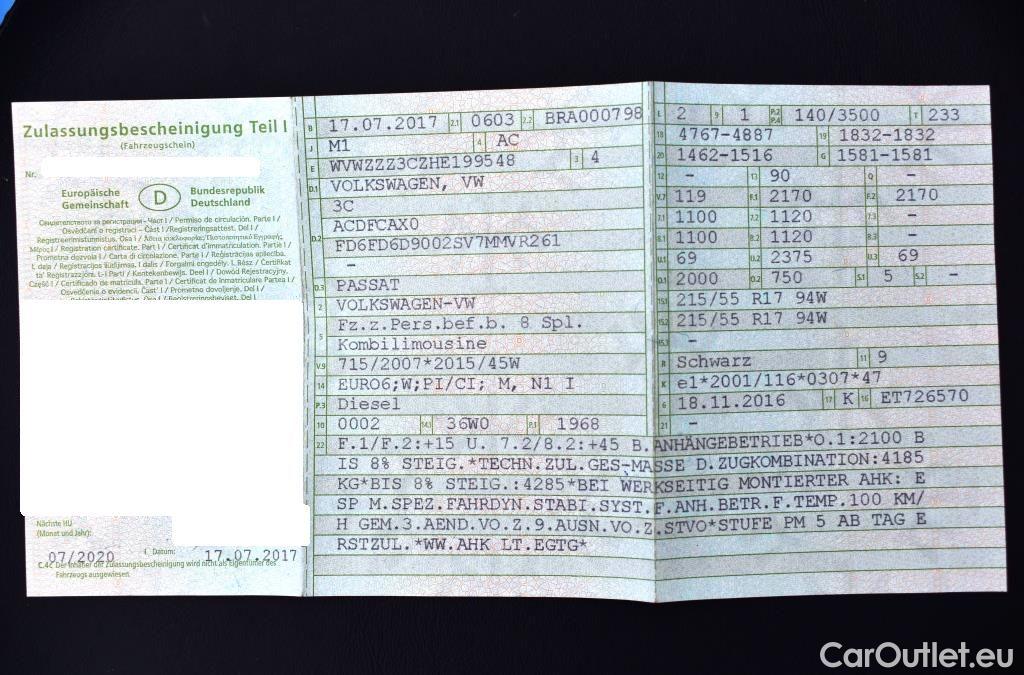 Zulassungsbescheinigung Teil I
(Fahrzeugschein)
Nr.
Europäische Gemeinschaft D Bundesrepublik Deutschland
Свидетелство за регистрация - Част I / Permiso de circulación. Parte I /
Osvědčení o registraci - Část I / Registreringsattest. Del I /
Registreerimistunnistus. Osa I / Άδεια κυκλοφορίας/Πιστοποιητικό Εγγραφής
Μέρος I / Registration certificate. Part I / Certificat d'immatriculation. Partie I /
Prometna dozvola I / Carta di circolazione. Parte I / Reģistrācijas apliecība.
I. daļa / Registracijos liudijimas. I dalis / Forgalmi engedély. I. Rész / Ċertifikat
ta' Reġistrazzjoni. L-I Parti / Kentekenbewijs. Deel I / Dowód Rejestracyjny.
Część I / Certificado de matrícula. Parte I / Certificat de înmatriculare Partea I /
Osvedčenie o evidencii. Časť I / Prometno dovoljenje. Del I /
Nächste HU
(Monat und Jahr):
07/2020 I Datum: 17.07.2017
C.4c Der Inhaber der Zulassungsbescheinigung wird nicht als Eigentümer des
Fahrzeugs ausgewiesen.
B 17.07.2017 2.1 0603 2.2 BRA000798
J M1 4 AC
E WVWZZZ3CZHE199548 3 4
D.1 VOLKSWAGEN, VW
3C
D.2 ACDFCAX0
FD6FD6D9002SV7MMVR261
-
D.3 PASSAT
2 VOLKSWAGEN-VW
5 Fz.z.Pers.bef.b. 8 Spl.
Kombilimousine
V.9 715/2007*2015/45W
14 EURO6;W;PI/CI; M, N1 I
P.3 Diesel
10 0002 14.1 36W0 P.1 1968
L 2 9 1 P.2 P.4 140/3500 T 233
18 4767-4887 19 1832-1832
20 1462-1516 G 1581-1581
12 - 13 90 Q -
V.7 119 F.1 2170 F.2 2170
7.1 1100 7.2 1120 7.3 -
8.1 1100 8.2 1120 8.3 -
U.1 69 U.2 2375 U.3 69
O.1 2000 O.2 750 S.1 5 S.2 -
15.1 215/55 R17 94W
15.2 215/55 R17 94W
15.3 -
R Schwarz 11 9
K e1*2001/116*0307*47
6 18.11.2016 17 K 16 ET726570
21 -
22 F.1/F.2:+15 U. 7.2/8.2:+45 B.ANHÄNGEBETRIEB*O.1:2100 B
IS 8% STEIG.*TECHN.ZUL.GES-MASSE D.ZUGKOMBINATION:4185
KG*BIS 8% STEIG.:4285*BEI WERKSEITIG MONTIERTER AHK: E
SP M.SPEZ.FAHRDYN.STABI.SYST.F.ANH.BETR.F.TEMP.100 KM/
H GEM.3.AEND.VO.Z.9.AUSN.VO.Z.STVO*STUFE PM 5 AB TAG E
RSTZUL.*WW.AHK LT.EGTG*
CarOutlet.eu